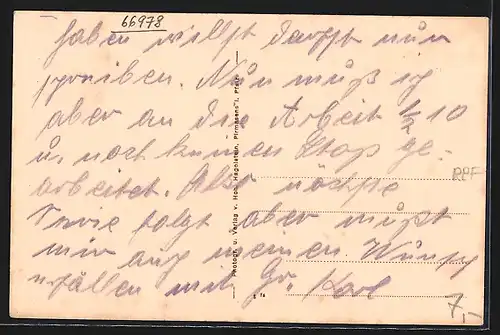 66978
haben willst darfst nur
schreiben. Nun muß ich
aber an die Arbeit ½ 10
u. noch keinen Stoß ge-
arbeitet. Also nächste
Serie folgt aber mußt
mir auch meinen Wunsch
erfüllen mit Gr. Karl
Photogr. u. Verlag v. Pirmasens i. Pfalz
RPF
7,-